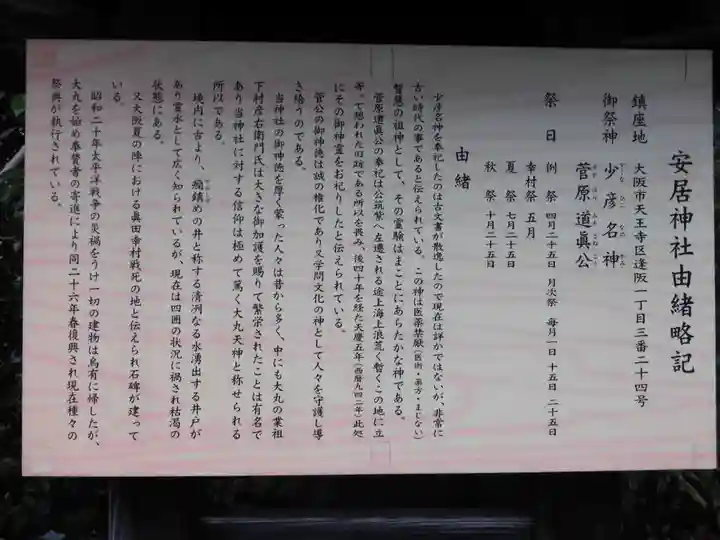 安居神社由緒略記
鎮座地 大阪市天王寺区逢阪一丁目三番二十四号
御祭神 少彦名神
菅原道眞公
祭日 例祭 四月二十五日 月次祭 毎月一日 十五日 二十五日
幸村祭 五月
夏祭 七月二十五日
秋祭 十月二十五日
由緒
少彦名神を奉祀したのは古文書が散逸したので現在は詳かではないが、非常に
古い時代の事であると伝えられている。この神は医薬禁厭(医術・薬方・まじない)
智慧の祖神として、その霊験はまことにあらたかな神である。
菅原道眞公の奉祀は公筑紫へ左遷される途上海上浪荒く暫くこの地に立
寄って憩われた旧跡である所以を畏み、後四十年を経た天慶五年(西暦九四二年)此処
にその御神霊をお祀りしたと伝えられている。
菅公の御神徳は誠の権化であり又学問文化の神として人々を守護し導
き給うのである。
当神社の御神徳を厚く蒙った人々は昔から多く、中にも大丸の業祖
下村彦右衛門氏は大きな御加護を賜りて繁栄されたことは有名で
あり当神社に対する信仰は極めて篤く大丸天神と称せられる
所以である。
境内に古より、癇鎮めの井と称する清冽なる水湧出する井戸が
あり霊水として広く知られているが、現在は四囲の状況に禍され枯渇の
状態にある。
又大阪夏の陣における眞田幸村戦死の地と伝えられ石碑が建って
いる。
昭和二十年太平洋戦争の災禍をうけ一切の建物は烏有に帰したが、
大丸を始め奉賛者の寄進により同二十六年春復興され現在種々の
祭典が執行されている。